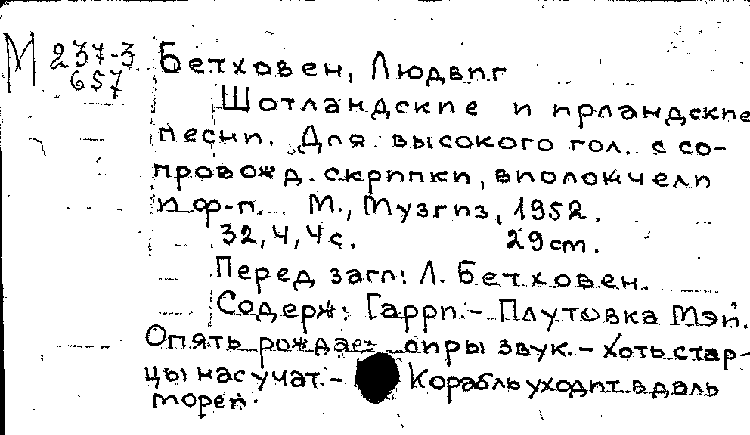 М 237-3
657
Бетховен, Людвиг
Шотландские и ирландские
песни. Для высокого гол. с со-
провожд. скрипки, виолончели
и ф-п. М., Музгиз, 1952.
32, 4, 4 с. 29 см.
Перед загл: Л. Бетховен.
Содерж: Гарри. - Плутовка Мэй.
Опять рождает лиры звук. - Хоть стар-
цы нас учат. - Корабль уходит вдаль
морей.